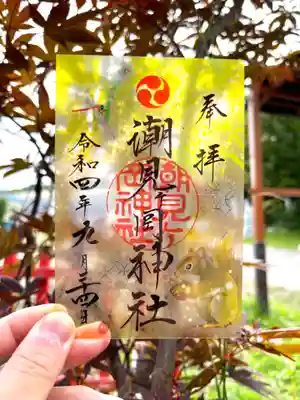 奉拝
潮見ヶ岡神社
潮見ヶ岡神社
令和四年九月二十四日